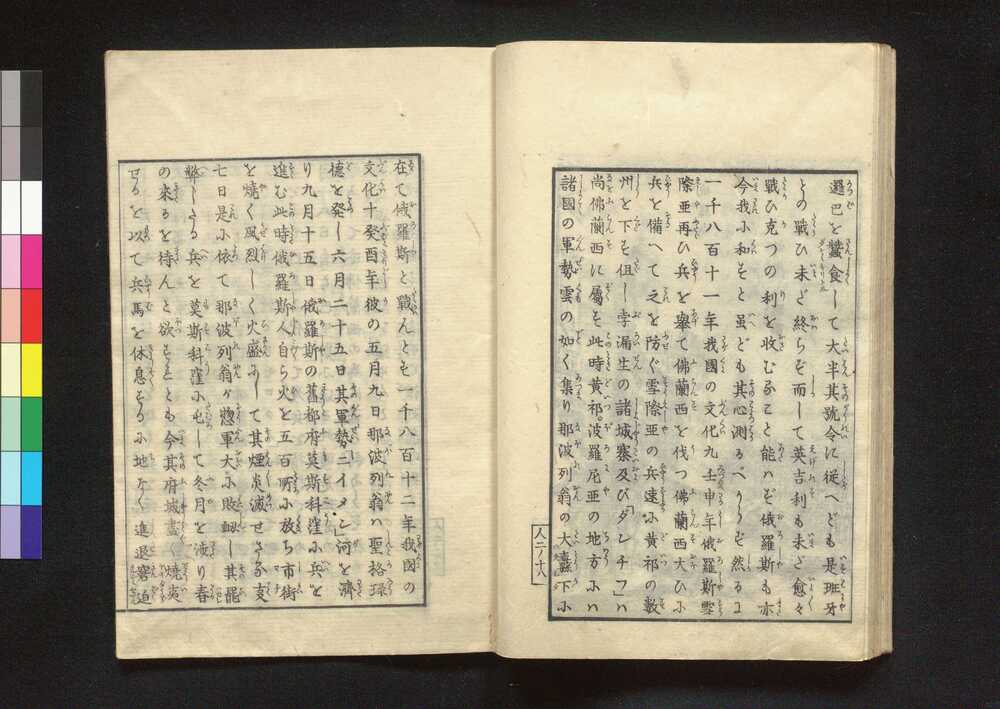 邏巴を蠶食して大半其號令に從へども是班牙
との戰ひ未だ終らず而して英吉利も未だ愈々
戰ひ克つの利を收むること能はず俄羅斯も亦
今我に和すと雖ども其心測るべからず然るに
一千八百十一年我國の文化九壬申年俄羅斯雪
際亞再び兵を擧て佛蘭西を伐つ佛蘭西大ひに
兵を備へて之を防ぐ雪際亞の兵速に黄祁の數
州を下す但し孛漏生の諸城寨及び「ダンチフ」ハ
尚佛蘭西に屬す此時黄祁。波羅尼亜の地方にハ
諸國の軍勢雲の如く集り那波列翁の大纛下に
人二ノ十八
在て俄羅斯と戰んとす一千八百十二年我國の
文化十癸酉年彼の五月九日那波列翁ハ聖格
德を發し六月二十五日其軍勢ニイメン河を濟
り九月十五日俄羅斯の舊都府莫斯科窪に兵を
進む此時俄羅斯人自ら火を五百所に放ち市街
を燒く風烈しく火盛にして其煙炎滅せざる支
七日是に依て那波列翁ガ惣軍大に敗衄し其罷
弊したる兵を莫斯科窪に屯して冬月を渉り春
の来るを待んと欲すれども今其府城盡く燒
せるを以て兵馬を休息するに地なく進退窘迫